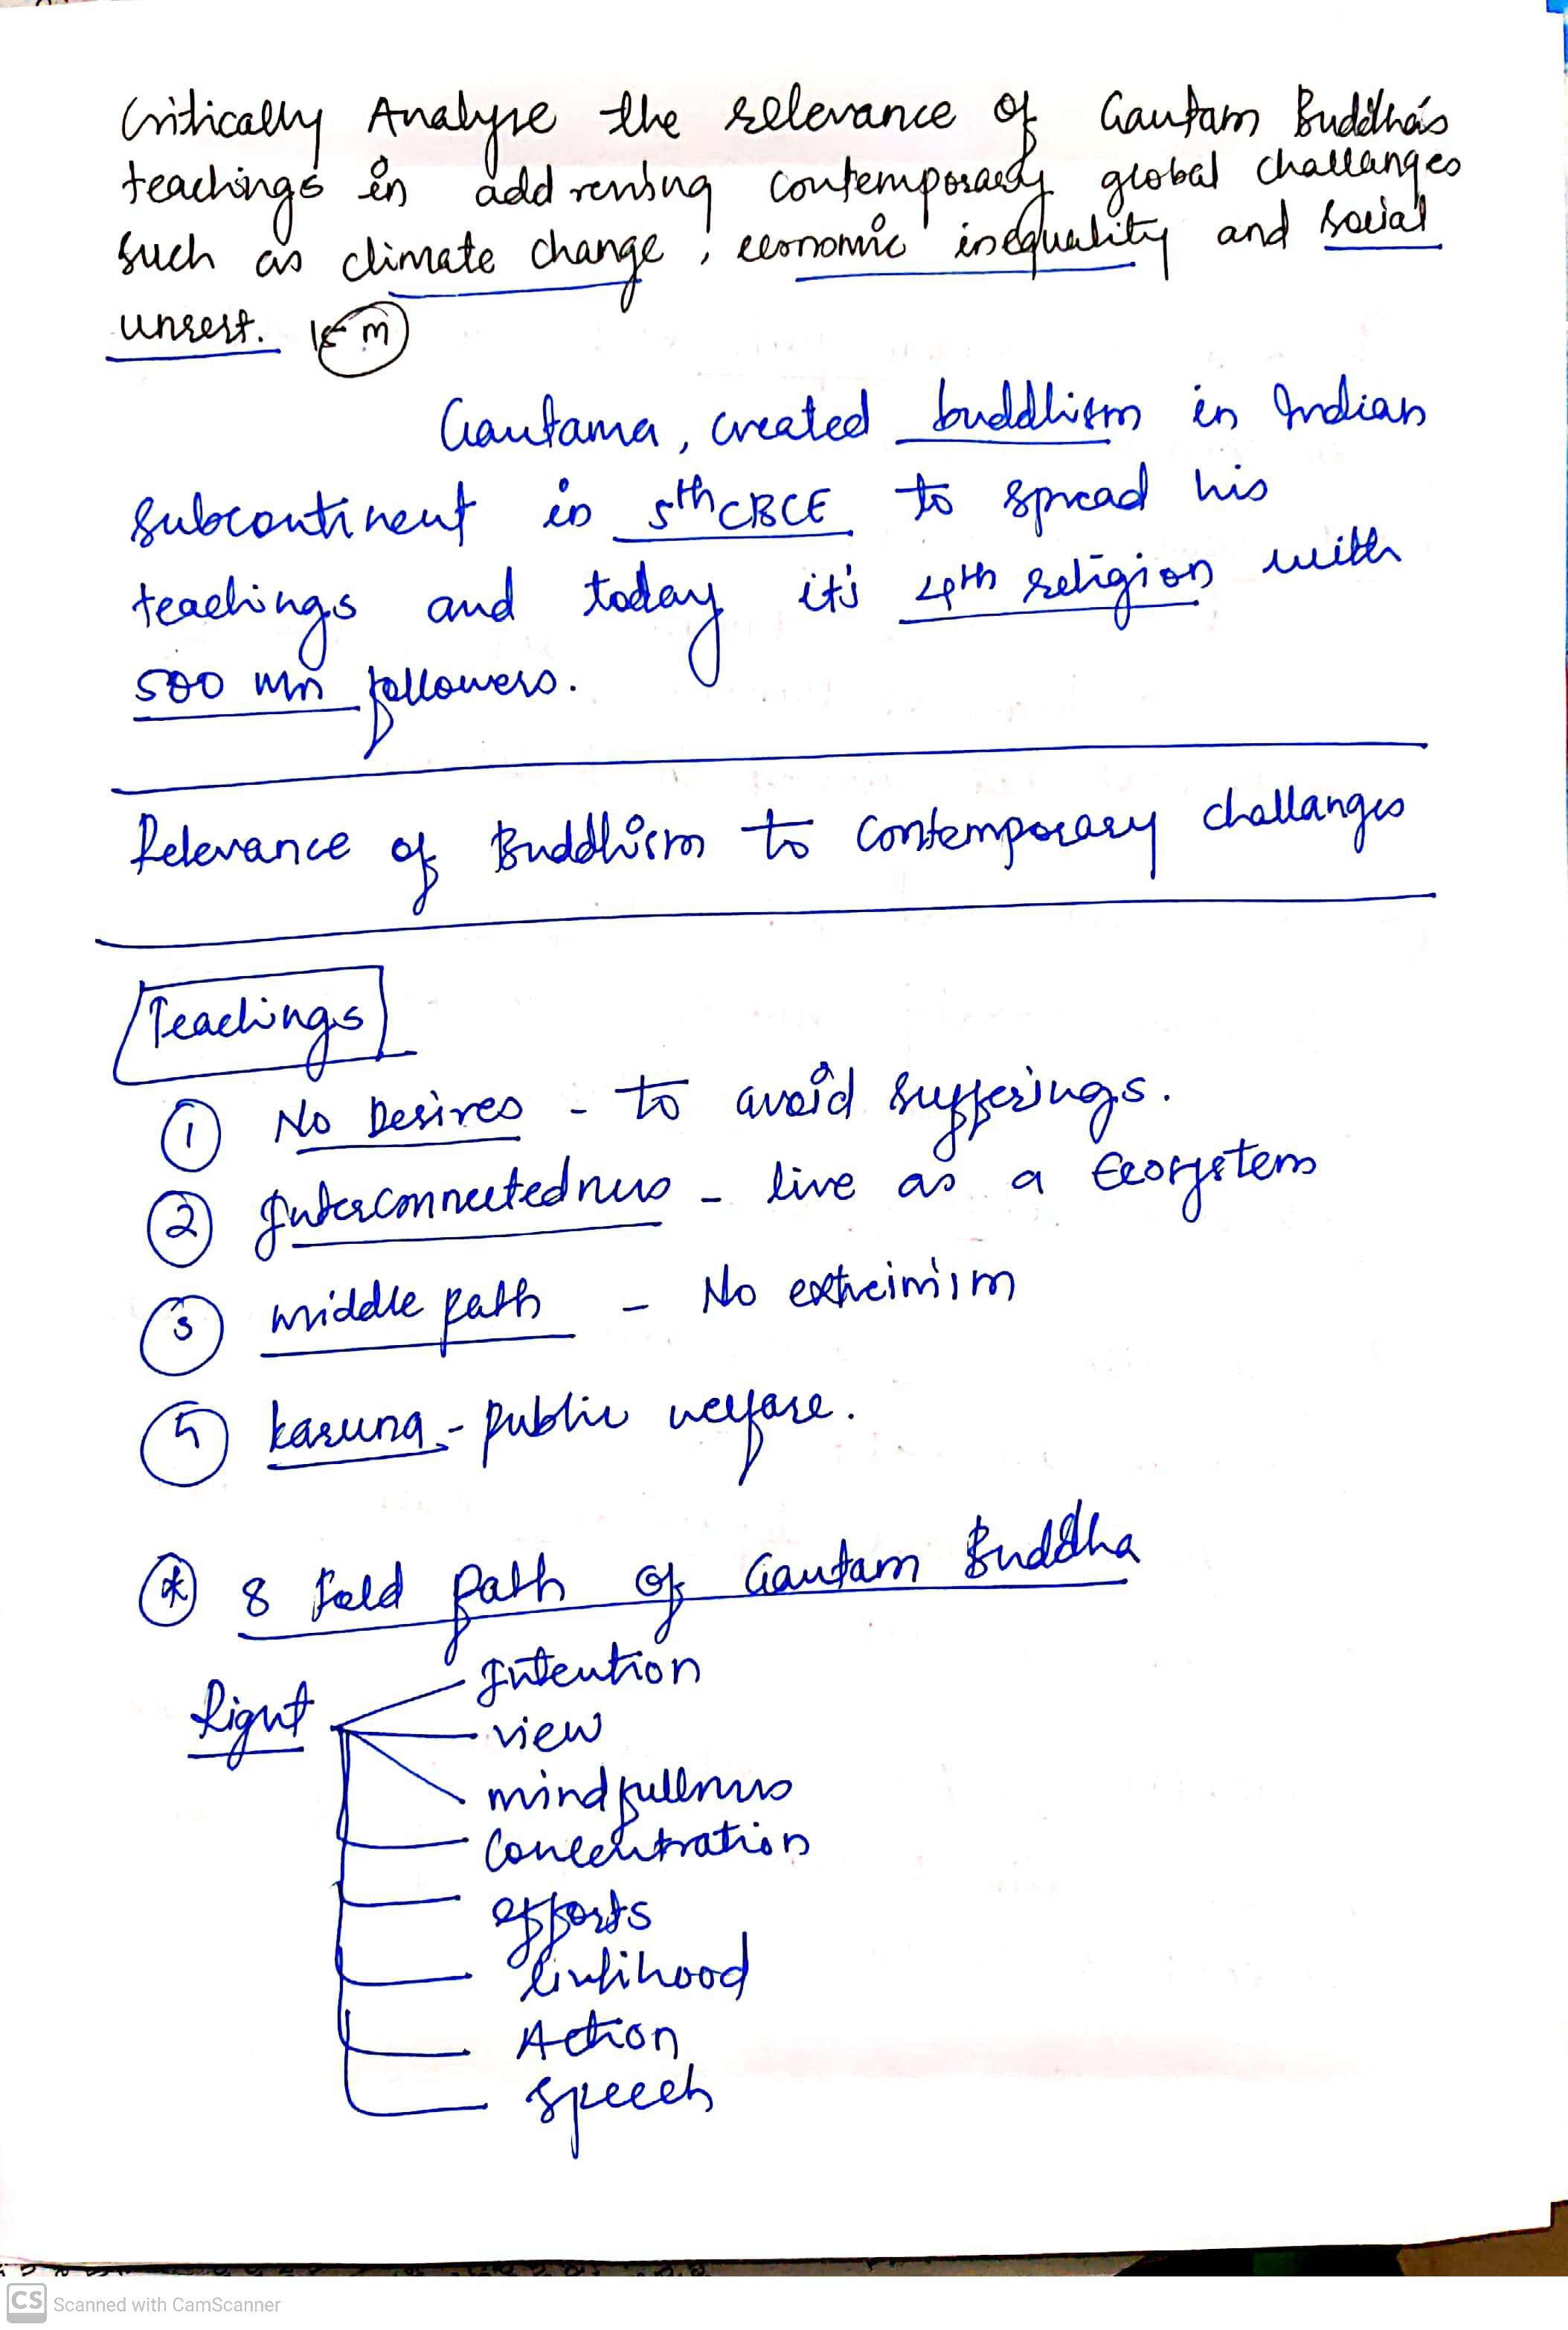 Critically Analyse the relevance of Gautam Buddha's
teachings in addressing contemporary global challanges
such as climate change, economic inequality and social
unrest. 15 m
Gautama, created buddhism in Indian
subcontinent in 5th CBCE to spread his
teachings and today it's 4th religion with
500 mn followers.
Relevance of Buddhism to Contemporary challanges
Teachings
1 No Desires - to avoid sufferings.
2 Interconnectedness - live as a Ecosystem
3 middle path - No extreimism
karuna - public welfare.
* 8 fold path of Gautam Buddha
Right
Intention
view
mindfullness
Concentration
efforts
livlihood
Action
speech
CS Scanned with CamScanner